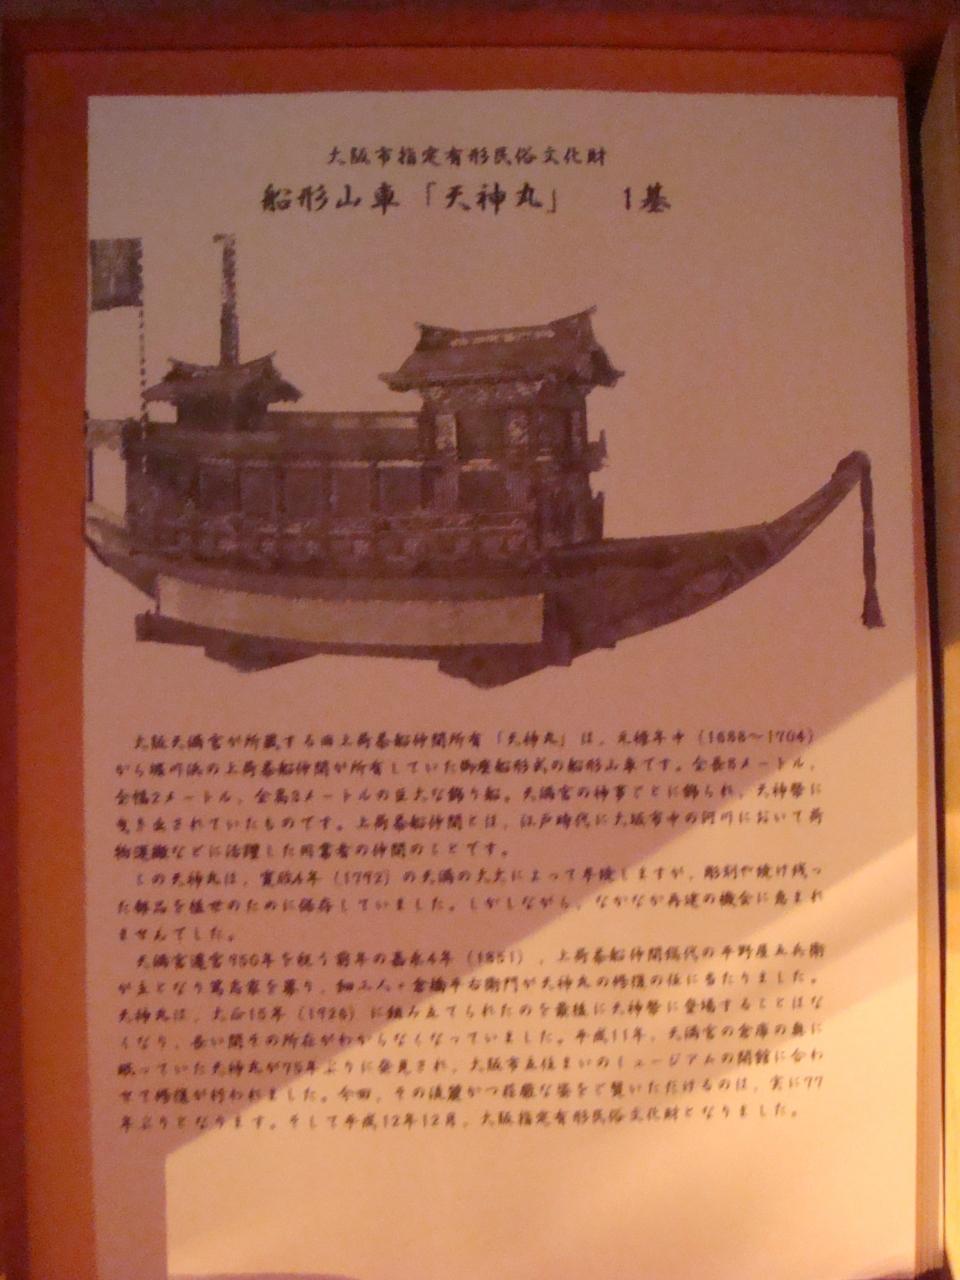 大阪市指定有形民俗文化財
船形山車「天神丸」 1基
大阪天満宮が所蔵する 上荷茶船仲間所有「天神丸」は、元禄年中(1688〜1704)
から堀川浜の上荷茶船仲間が所有していた御座船形式の船形山車です。全長8メートル、
全幅2メートル、全高3メートルの巨大な飾り船。天満宮の神事ごとに飾られ、天神祭に
曳き出されていたものです。上荷茶船仲間とは、江戸時代に大坂市中の河川において荷
物運搬などに活躍した同業者の仲間のことです。
この天神丸は、寛政4年(1792)の天満の大火によって焼損しますが、彫刻や焼け残っ
た部品を後世のために保存していました。しかしながら、なかなか再建の機会に恵まれ
ませんでした。
天満宮還宮950年を祝う前年の嘉永4年(1851)、上荷茶船仲間総代の平野屋五兵衛
が主となり篤志家を募り、細工人・倉橋平右衛門が天神丸の修復の任に当たりました。
天神丸は、大正15年(1926)に組み立てられたのを最後に天神祭に登場することはな
くなり、長い間その所在がわからなくなっていました。平成11年、天満宮の倉庫の奥に
眠っていた天神丸が75年ぶりに発見され、大阪市立住まいのミュージアムの開館に合わ
せて修復が行われました。今回、その流麗かつ荘厳な姿をご覧いただけるのは、実に77
年ぶりとなります。そして平成12年12月、大阪指定有形民俗文化財となりました。